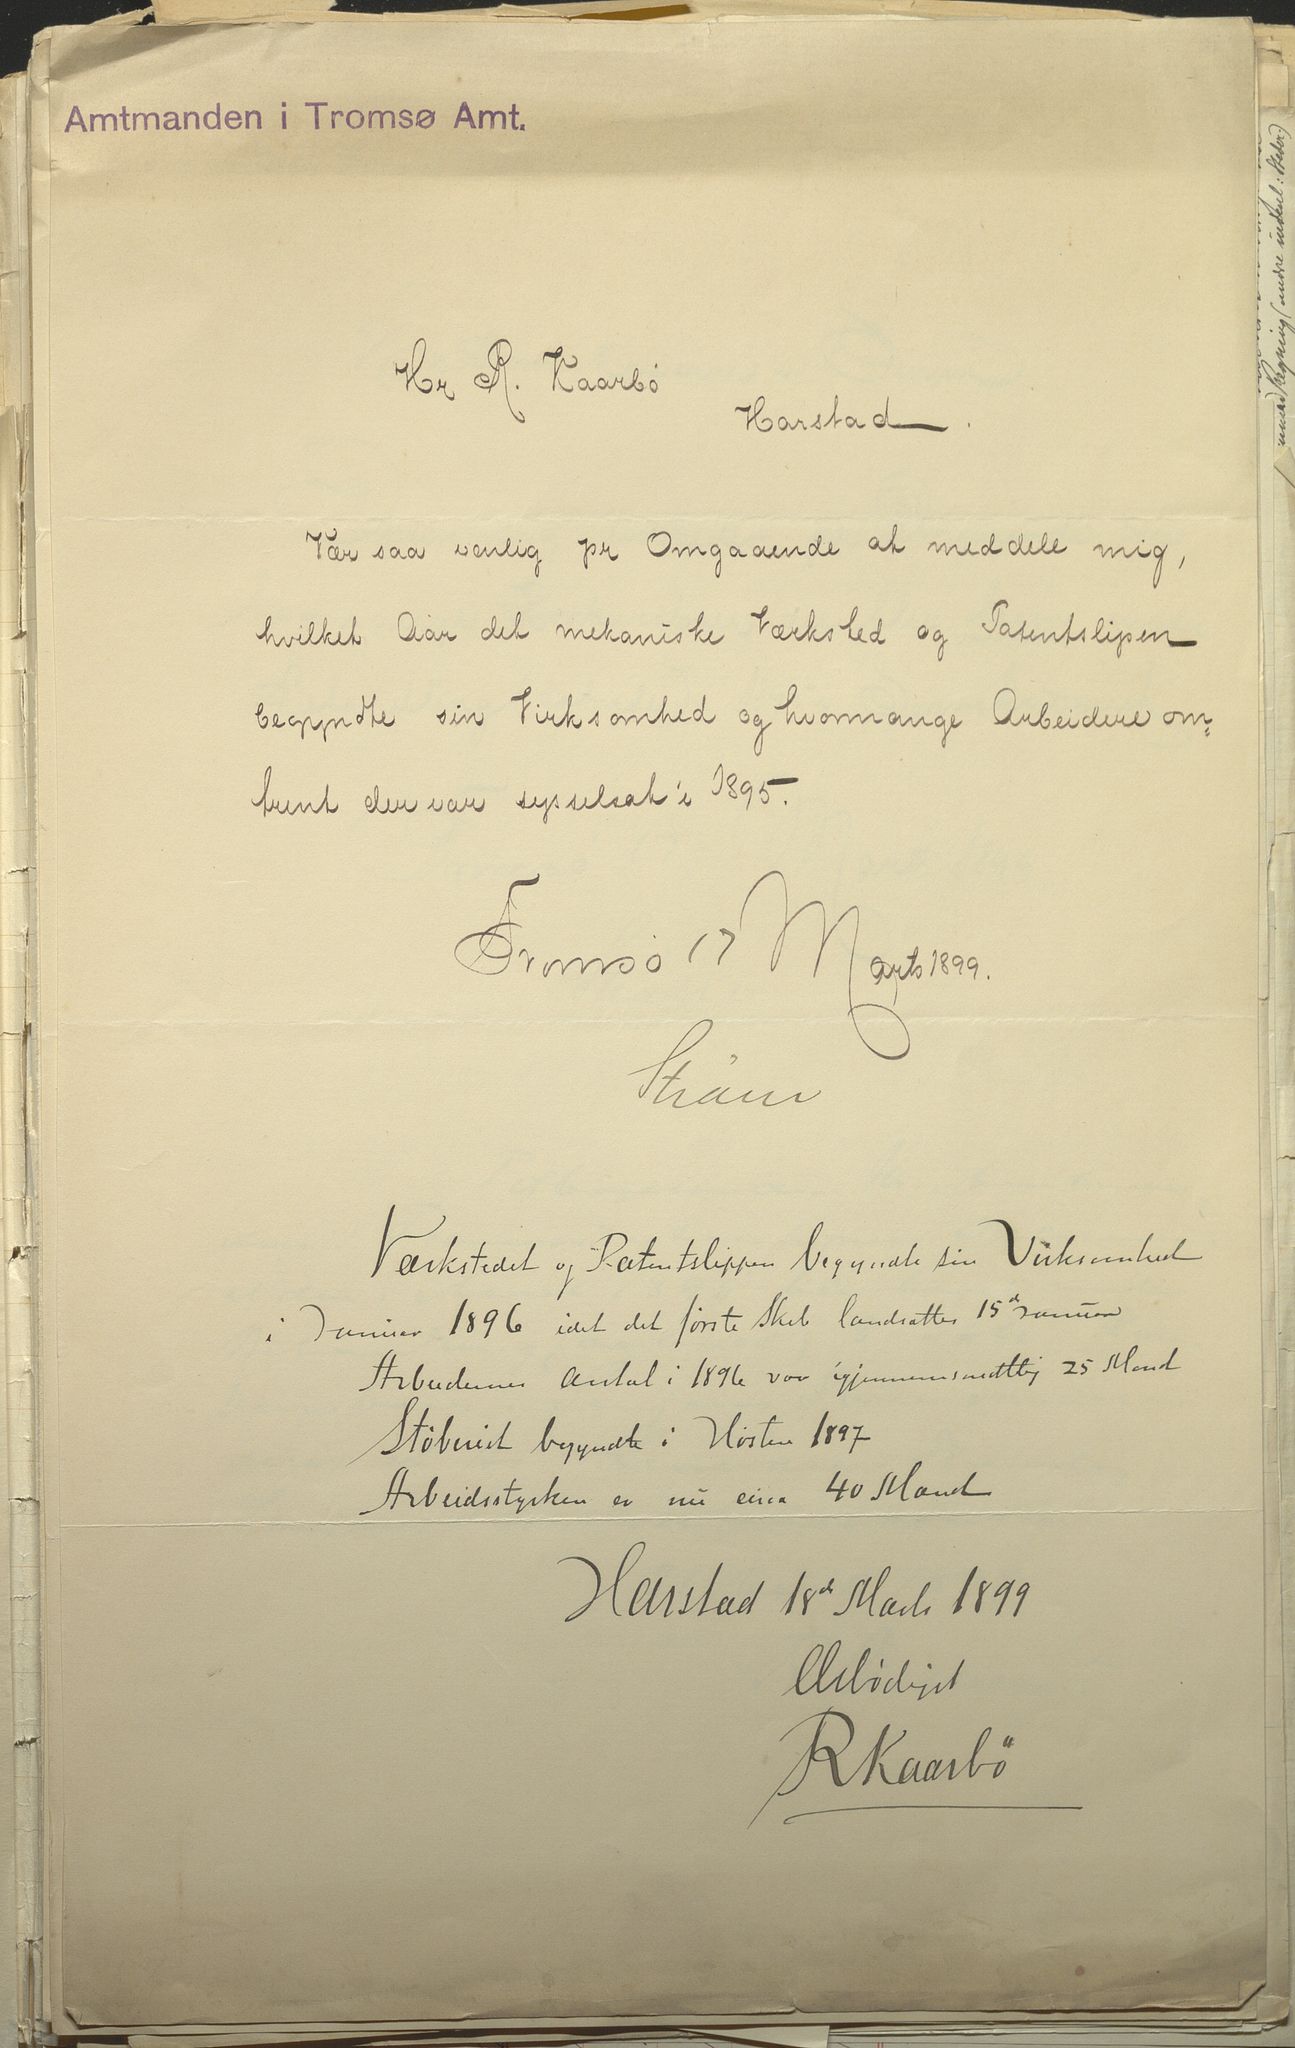 Amtmanden i Tromsø Amt.
Hr R. Kaarbö
Harstad.
Vær saa venlig pr Omgaaende at meddele mig,
hvilket Aar det mekaniske Værksted og Patentslipen
begyndte sin Virksomhed og hvormange Arbeidere om=
trent der var sysselsat i 1895.
Tromsö 17 Marts 1899.
Ström
Værkstedet og Patentslippen begyndte sin Virksomhed
i Januar 1896 idet det første Skib landsattes 15d Januar
Arbeidernes Antal i 1896 var igjennemsnittlig 25 Mand
Støberiet begyndte i Høsten 1897
Arbeidsstyrken er nu circa 40 Mand
Harstad 18d Marts 1899
Ærbødigst
RKaarbö
Regning (andre indeul: Steder)